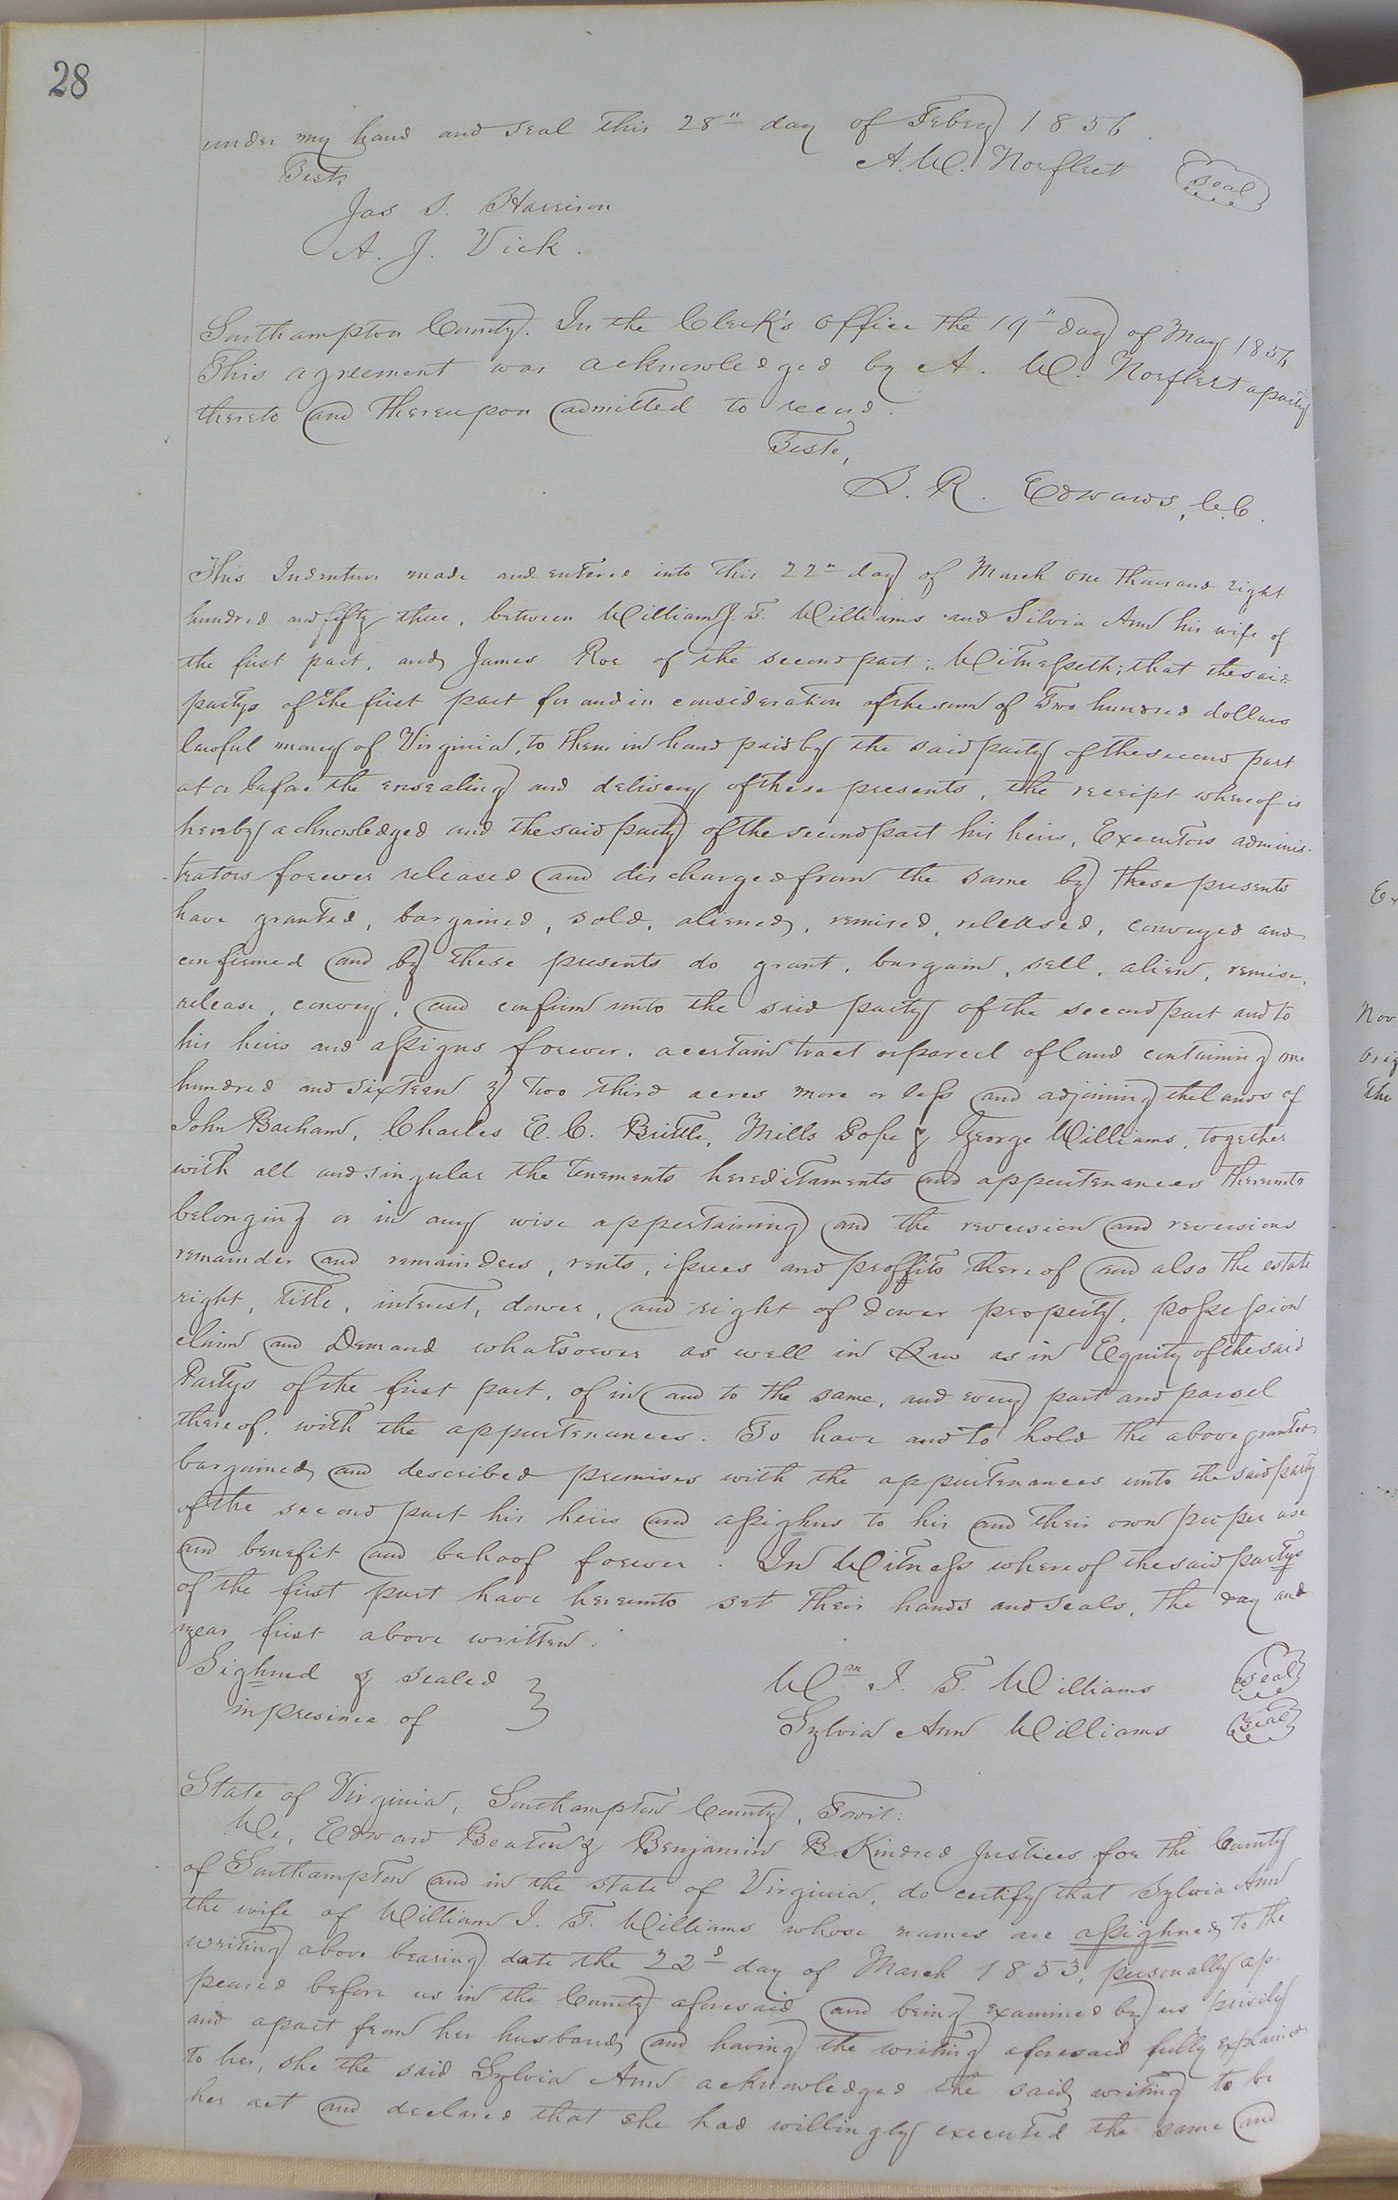 28
under my hand and seal this 28" day of Febry 1856.
Test, A. W. Norfleet Seal
Jas S. Harrison
A. J. Vick.
Southampton County. In the Clerk's office the 19" day of May 1856
This agreement was acknowledged by A. W. Norfleet a party
thereto and thereupon admitted to record.
Teste,
L. R. Edwards, C.C.
This Indenture made and entered into this 22" day of March one thousand eight
hundred and fifty three, between William J. T. Williams and Silvia Ann his wife of
the first part, and James Roe of the second part: Witnesseth; that the said
partys of the first part for and in consideration of the sum of Two hundred dollars
lawful money of Virginia, to them in hand paid by the said party of the second part
at or before the ensealing and delivery of these presents, the receipt whereof is
hereby acknowledged and the said party of the second part his heirs, Executors adminis-
trators forever released and discharged from the same by these presents
have granted, bargained, sold, aliened, remised, released, conveyed and
confirmed and by these presents do grant, bargain, sell, alien, remise,
release, convey, and confirm unto the said party of the second part and to
his heirs and assigns forever. a certain tract or parcel of land containing one
hundred and sixteen & two third acres more or less and adjoining the lands of
John Barham, Charles E. C. Brittle, Mills Pope & George Williams, together
with all and singular the tenements hereditaments and appurtenances thereunto
belonging or in any wise appertaining and the reversion and reversions
remainder and remainders, rents, issues and proffits thereof and also the estate
right, title, interest, dower, and right of dower property, possession
claim and Demand whatsoever as well in Law as in Equity of the said
Partys of the first part, of in and to the same, and every part and parsel
thereof, with the appurtenances. To have and to hold the above granted
bargained and described premises with the appurtenances unto the said party
of the second part his heirs and assighns to his and their own proper use
and benefit and behoof forever. In Witness whereof the said partys
of the first part have hereunto set their hands and seals, the day and
year first above written.
Sighned & sealed Wm J. T. Williams Seal
in presence of Sylvia Ann Williams Seal
State of Virginia, Southampton County, Towit:
We, Edward Beaton & Benjamin B. Kindred Justices for the County
of Southampton and in the state of Virginia, do certify that Sylvia Ann
the wife of William J. T. Williams whose names are assighned to the
writing above bearing date the 22d day of March 1853, personally ap-
peared before us in the County aforesaid and being examined by us privily
and apart from her husband, and having the writing aforesaid fully explained
to her, she the said Sylvia Ann acknowledged the said writing to be
her act and declared that she had willingly executed the same and
Nov
The